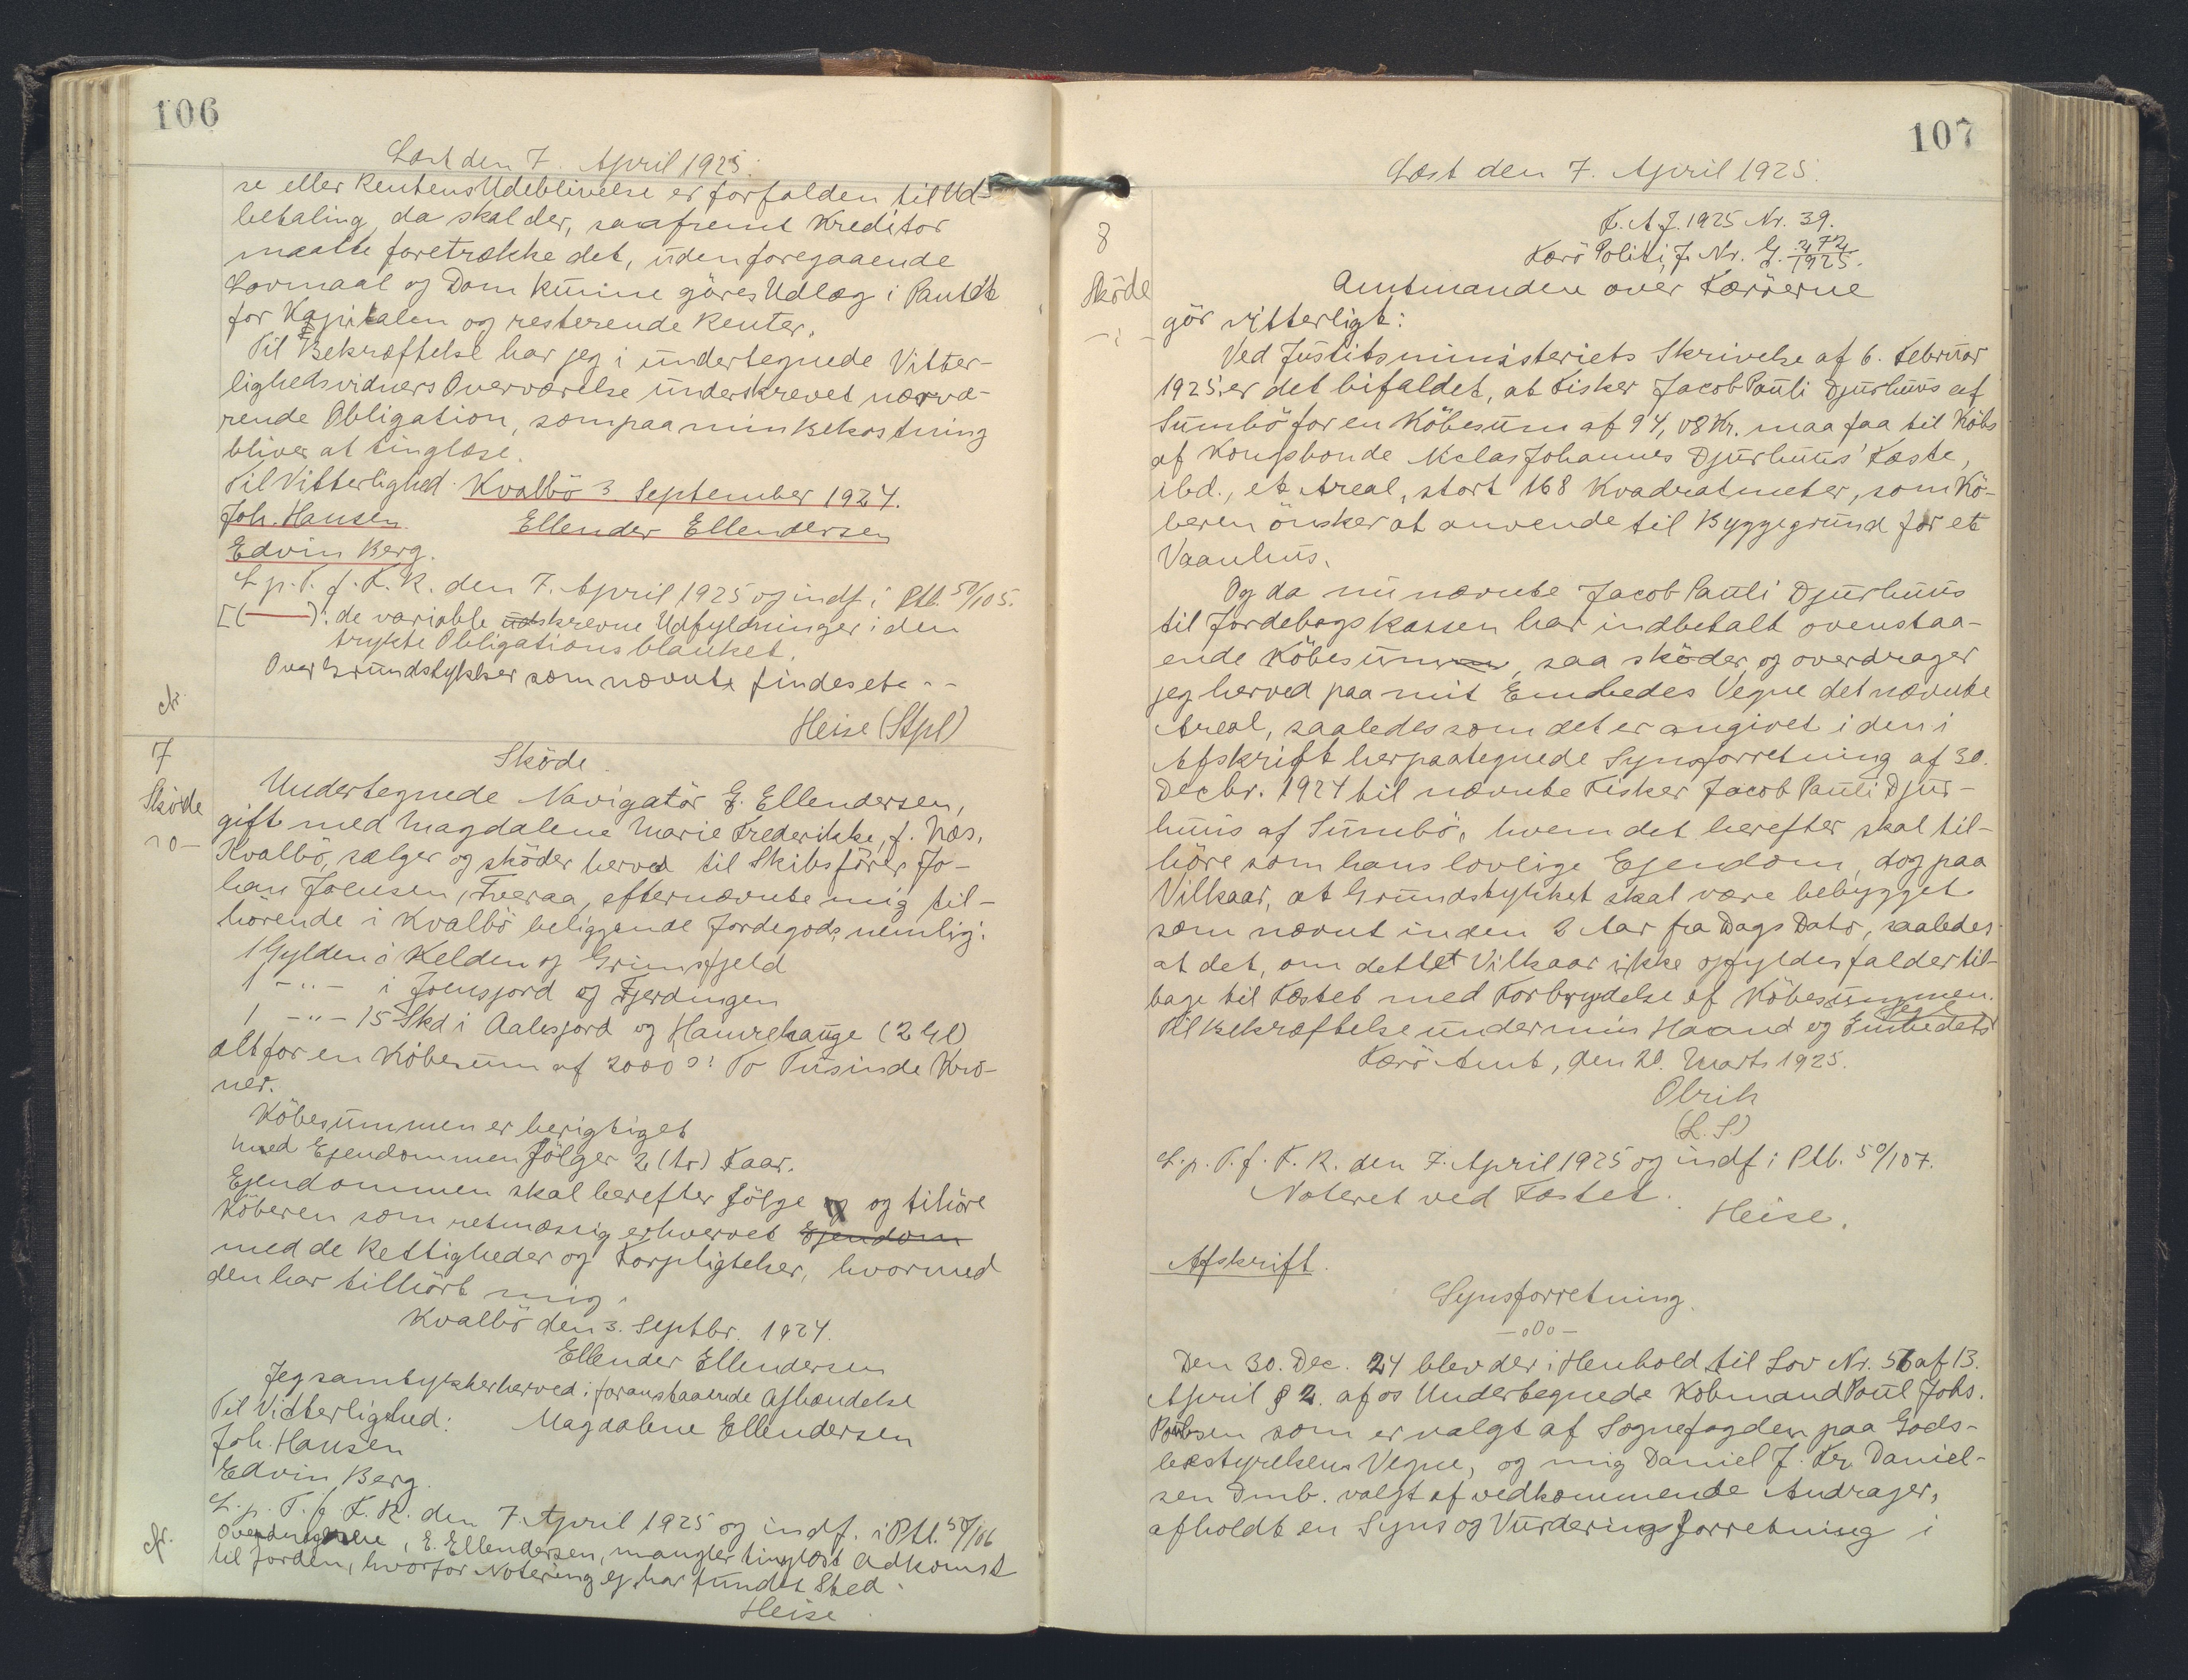 106
Læst den 7. April 1925.
se eller Rentens Udeblivelse er forfalden til Ud-
betaling, da skal der, saafremt Kreditor
maatte foretrække det, uden foregaaende
Lovmaal og Dom kunne göres Udlæg i Pantet
for Kapitalen og resterende Renter.
Til Bekræftelse har jeg i undertegnede Vitter-
lighedsvidners Overværelse underskrevet nærvæ-
rende Obligation, som paa min Bekostning
bliver at tinglæse.
Til Vitterlighed. Kvalbö 3 September 1924.
Joh. Hansen. Ellender Ellendersen
Edvin Berg.
L. p. T. f. F. R. den 7. April 1925 og indf. i Ptb. 50/105.
[(——): de variable udskrevne Udfyldninger i den
trykte Obligationsblanket.
Over Grundstykker som nævnte findes etc. - -
Heise (Stpl)
7
Sköde
10 -
Sköde.
Undertegnede Navigatör E. Ellendersen,
gift med Magdalene Marie Frederikke, f. Næs,
Kvalbö, sælger og sköder herved til Skibsförer Jo-
han Joensen, Tveraa, efternævnte mig til-
hörende i Kvalbö beliggende Jordegods, nemlig:
1 Gylden i Kelden og Grimsfjeld
1 -"- i Joensjord og Fjerdingen
1 -"- 15 Skd i Aalesjord og Hamrehauge (2 Gl)
alt for en Köbesum af 2000 ɔ: To Tusinde Kro-
ner.
Köbesummen er berigtiget
Med Ejendommen fölger 2 (to) Faar.
Ejendommen skal herefter fölge og tilhöre
Köberen som retmæssig erhvervet Ejendom
med de Rettigheder og Forpligtelser, hvormed
den har tilhört mig.
Kvalbö den 3. Septbr. 1924.
Ellender Ellendersen
Jeg samtykker herved i foranstaaende Afhændelse
Til Vitterlighed: Magdalene Ellendersen
Joh. Hansen
Edvin Berg.
L. p. T. f. F. R. den 7. April 1925 og indf. i Ptb. 50/106
Overdrageren, E. Ellendersen, mangler tinglæst Adkomst
til Jorden, hvorfor Notering ej har fundet Sted.
Heise.
107
Læst den 7. April 1925.
8
Sköde
F. A. J. 1925 Nr. 39.
Færö Politi J. Nr. G. 272/1925.
Amtmanden over Færöerne
gör vitterligt:
Ved Justitsministeriets Skrivelse af 6. Februar
1925 er det bifaldet, at Fisker Jacob Pauli Djurhuus af
Sumbö for en Köbesum af 94,08 Kr. maa faa til Köbs
af Kongsbonde Niclas Johannes Djurhuus' Fæste,
ibd., et Areal, stort 168 Kvadratmeter, som Kö-
beren önsker at anvende til Byggegrund for et
Vaanhus.
Og da nu nævnte Jacob Pauli Djurhuus
til Jordebogskassen har indbetalt ovenstaa-
ende Köbesum, saa sköder og overdrager
jeg herved paa mit Embedes Vegne det nævnte
Areal, saaledes som det er angivet i den i
Afskrift herpaategnede Synsforretning af 30.
Decbr. 1924 til nævnte Fisker Jacob Pauli Djur-
huus af Sumbö, hvem det herefter skal til-
höre som hans lovlige Ejendom, dog paa
Vilkaar, at Grundstykket skal være bebygget
som nævnt inden 2 Aar fra Dags Dato, saaledes
at det, om dettet Vilkaar ikke opfyldes falder til-
bage til Fæstet med Forbrydelse af Köbesummen.
Til Bekræftelse under min Haand og Embedets Segl
Færö Amt, den 20. Marts 1925.
Olrik
(L. S)
L. p. T. f. F. R. den 7. April 1925 og indf. i Ptb. 50/107.
Noteret ved Fæstet.
Heise.
Afskrift.
Synsforretning.
—o0o—
Den 30. Dec. 24 blev der i Henhold til Lov Nr. 56 af 13.
April § 2. af os Undertegnede Köbmand Poul Johs.
Poulsen som er valgt af Sognefogden paa Gods-
bestyrelsens Vegne, og mig Daniel J. Kr. Daniel-
sen Dmb. valgt af vedkommende Andrager,
afholdt en Syns og Vurderingsforretning i